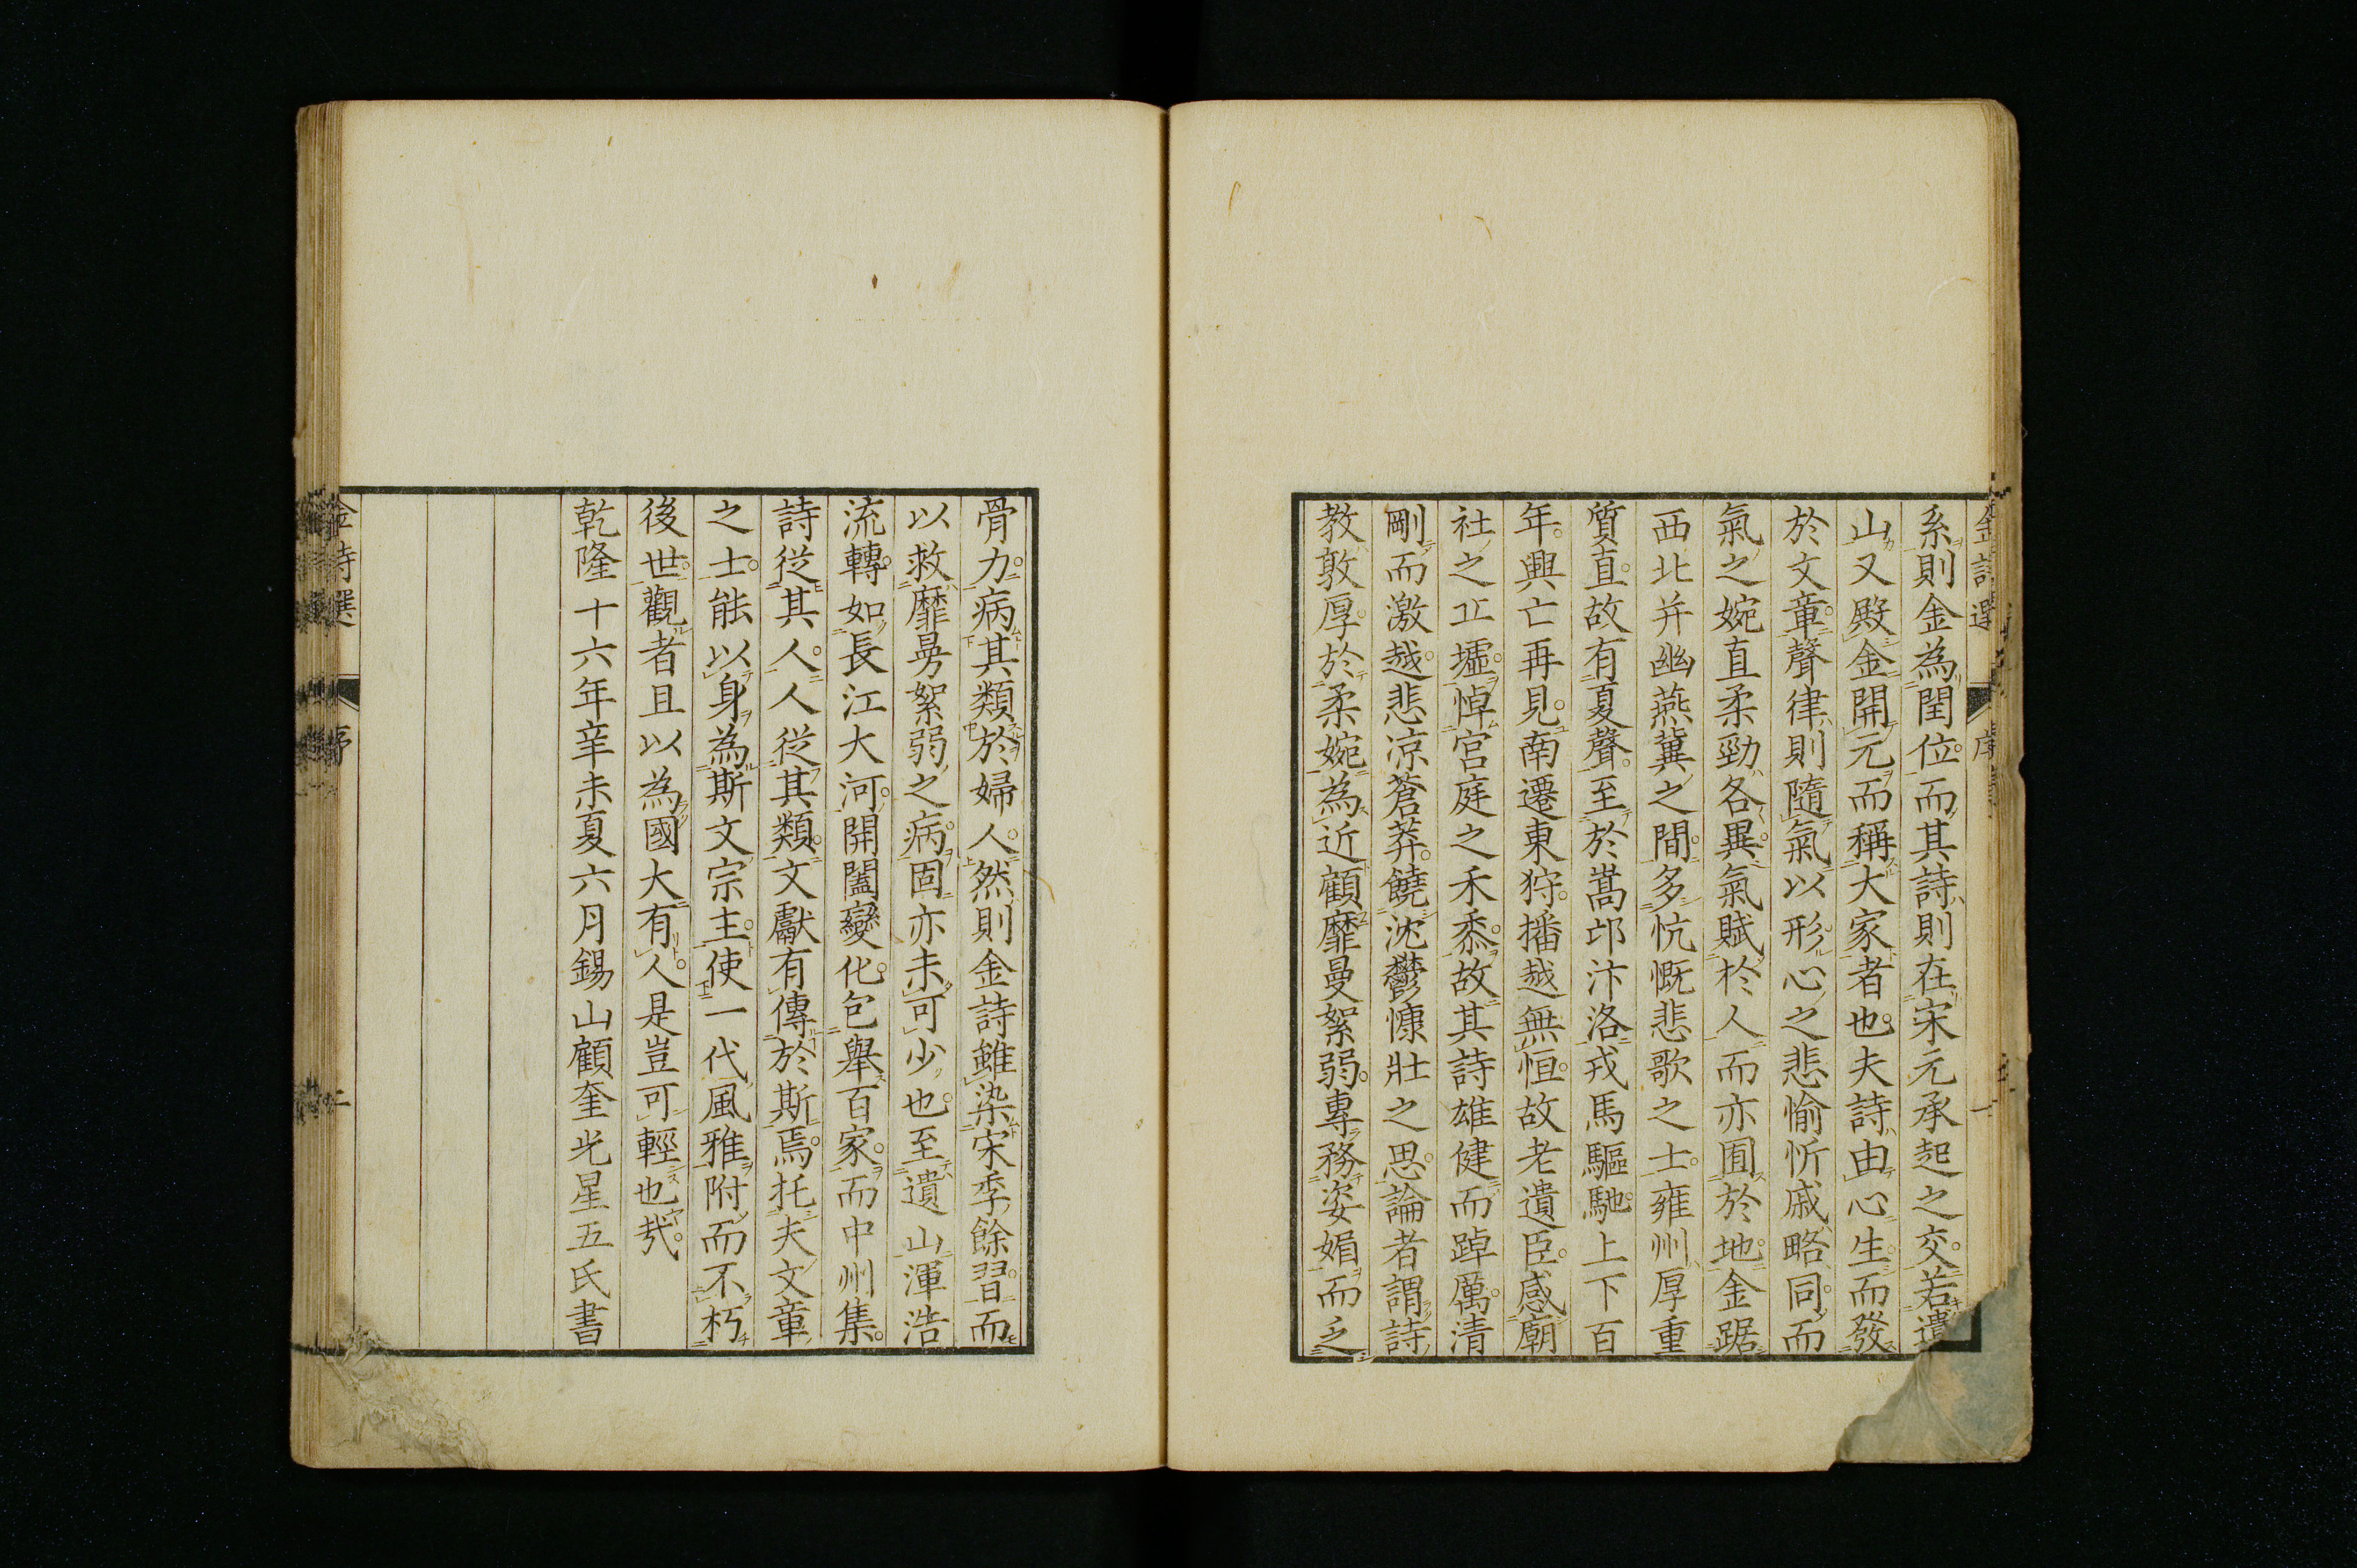 系則金為閏位而其詩則在宋元承起之交若遺
山又殿金開元而稱大家者也夫詩由心生而發
於文章聲律則隨氣以形心之悲愉忻戚略同而
氣之婉直柔勁各異氣賦於人而亦囿於地金踞
西北并幽燕冀之間多忼慨悲歌之士雍州厚重
質直故有夏聲至於嵩邙汴洛戎馬驅馳上下百
年興亡再見南遷東狩播越無恒故老遺臣感廟
社之丘墟悼宮庭之禾黍故其詩雄健而踔厲清
剛而激越悲涼蒼莽饒沈鬱慷壯之思論者謂詩
教敦厚於柔婉為近顧靡曼絮弱專務姿媚而乏
骨力病其類於婦人然則金詩雖染宋季餘習而
以救靡曼絮弱之病固亦未可少也至遺山渾浩
流轉如長江大河開闔變化包舉百家而中州集
詩從其人人從其類文獻有傳於斯焉托夫文章
之士能以身為斯文宗主使一代風雅附而不朽
後世觀者且以為國大有人是豈可輕也哉
乾隆十六年辛未夏六月錫山顧奎光星五氏書
金詩選
序
二